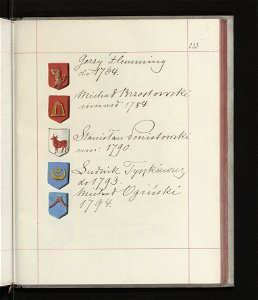 133
Jerzy Flemming
do 1764.
Michał Brzostowski
umarł 1784
Stanisław Poniatowski
um: 1790.
Ludwik Tyszkiewicz
do 1793
Michał Ogiński
1794.